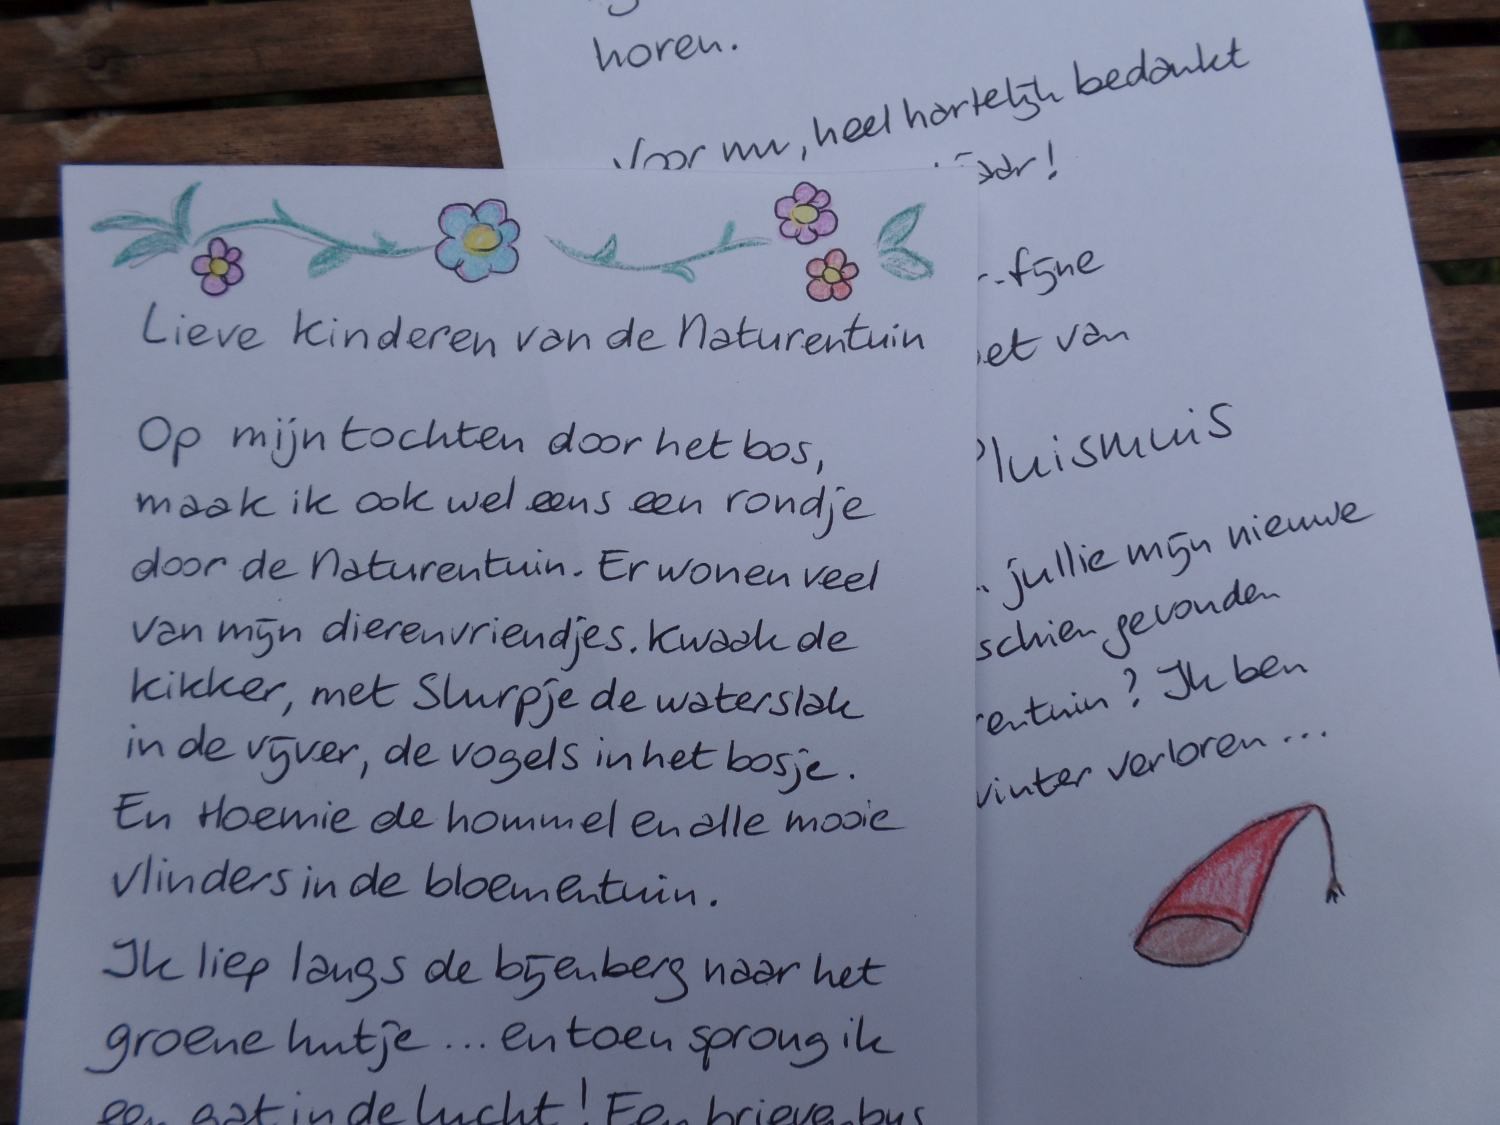 Lieve kinderen van de Naturentuin
Op mijn tochten door het bos,
maak ik ook wel eens een rondje
door de Naturentuin. Er wonen veel
van mijn dierenvriendjes. Kwaak de
kikker, met Slurpje de waterslak
in de vijver, de vogels in het bosje.
En Hoemie de hommel en alle mooie
vlinders in de bloementuin.
Ik liep langs de bijenberg naar het
groene hutje ... en toen sprong ik
een gat in de lucht! Een brievenbus
horen.
Voor nu, heel hartelijk bedankt
aar!
fijne
et van
Pluismuis
jullie mijn nieuwe
schien gevonden
rentuin? Ik ben
winter verloren ...